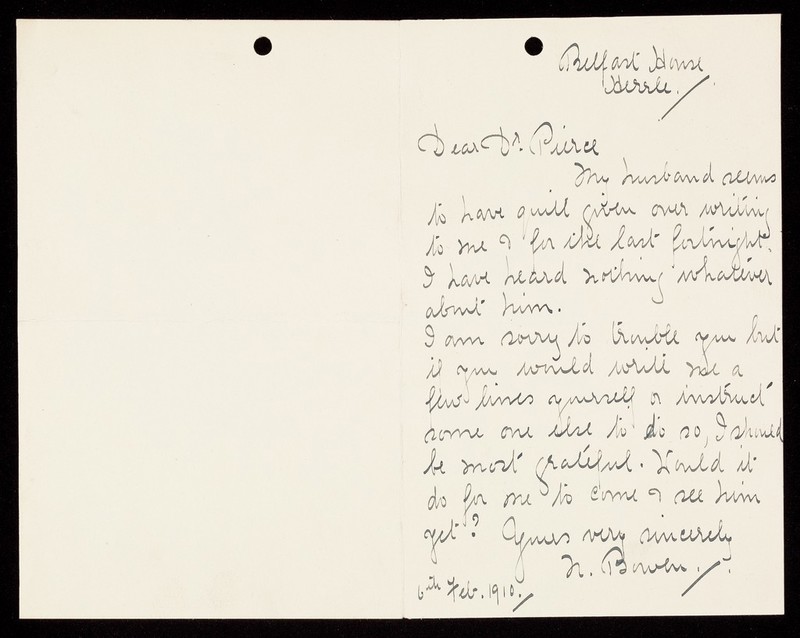 Belfast House
Dear Dr. Pierce
My husband seems
to have quite given over writing
to me & for the last fortnight.
I have heard nothing whatever
about him.
I am sorry to trouble you but
if you would write me a
few lines yourself or instruct
some one else to do so, I should
be most grateful. Would it
do for me to come & see him
yet? Yours very sincerely
N. Bowen.
6th Feb. 1910.